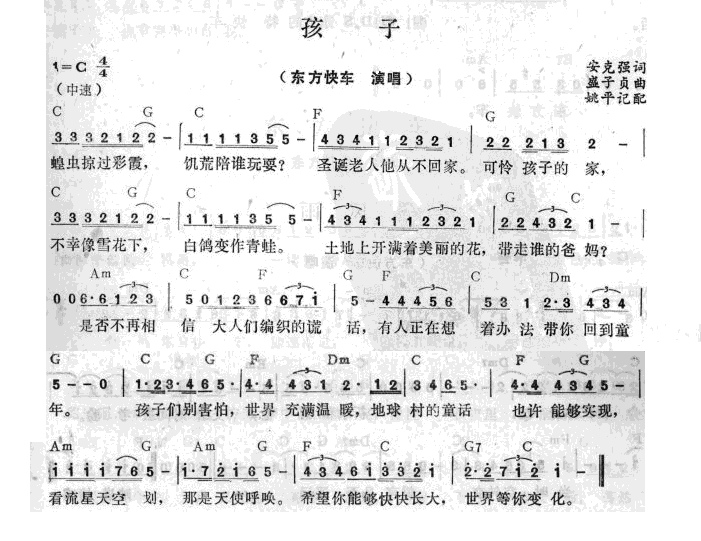 孩 子
1=C 4/4
（东方快车 演唱）
安克强词
（中速）
盛子贞曲
姚平记配
C G C F G
3 3 3 2 1 2 2 - | 1 1 1 1 3 5 5 - | 4 3 4 1 1 2 3 2 1 | 2 2 2 1 3 2 - |
蝗虫掠过彩霞， 饥荒陪谁玩耍？ 圣诞老人他从不回家。 可怜 孩子的 家，
C G C F G C
3 3 3 2 1 2 2 - | 1 1 1 1 3 5 5 - | 4 3 4 1 1 1 2 3 2 1 | 2 2 4 3 2 1 - |
不幸像雪花下， 白鸽变作青蛙。 土地上开满着美丽的花，带走谁的爸 妈？
Am C F G F C Dm
0 0 6·6 1 2 3 | 5 0 1 2 3 6 6 7 i | 5 - 4 4 4 5 6 | 5 3 1 2·3 4 3 4 |
是否不再相 信 大人们编织的谎 话，有人正在想 着办 法 带你 回到童
G C G F Dm C F G
5 - - 0 | 1·2 3·4 6 5·4·4 | 4 3 1 2·1 2 | 3 4 6 5· | 4·4 4 3 4 5 - |
年。 孩子们别害怕，世界 充满温 暖，地球 村的童话 也许 能够实现，
Am G Am G F C G7 C
i i i i 7 6 5 - | i·7 2 i 6 5 - | 4 3 4 6 i 3 3 2 i | 2·2 7 i 2 i - ‖
看流星天空 划， 那是天使呼唤。 希望你能够快快长大， 世界等你变 化。